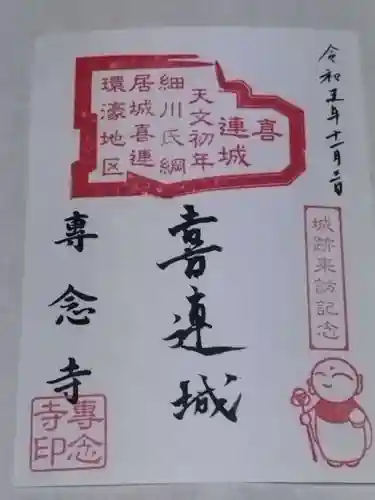 令和五年十一月三日
喜連城
天文初年
細川氏綱
居城喜連
環濠地区
城跡来訪記念
喜連城
專念寺
專念寺印